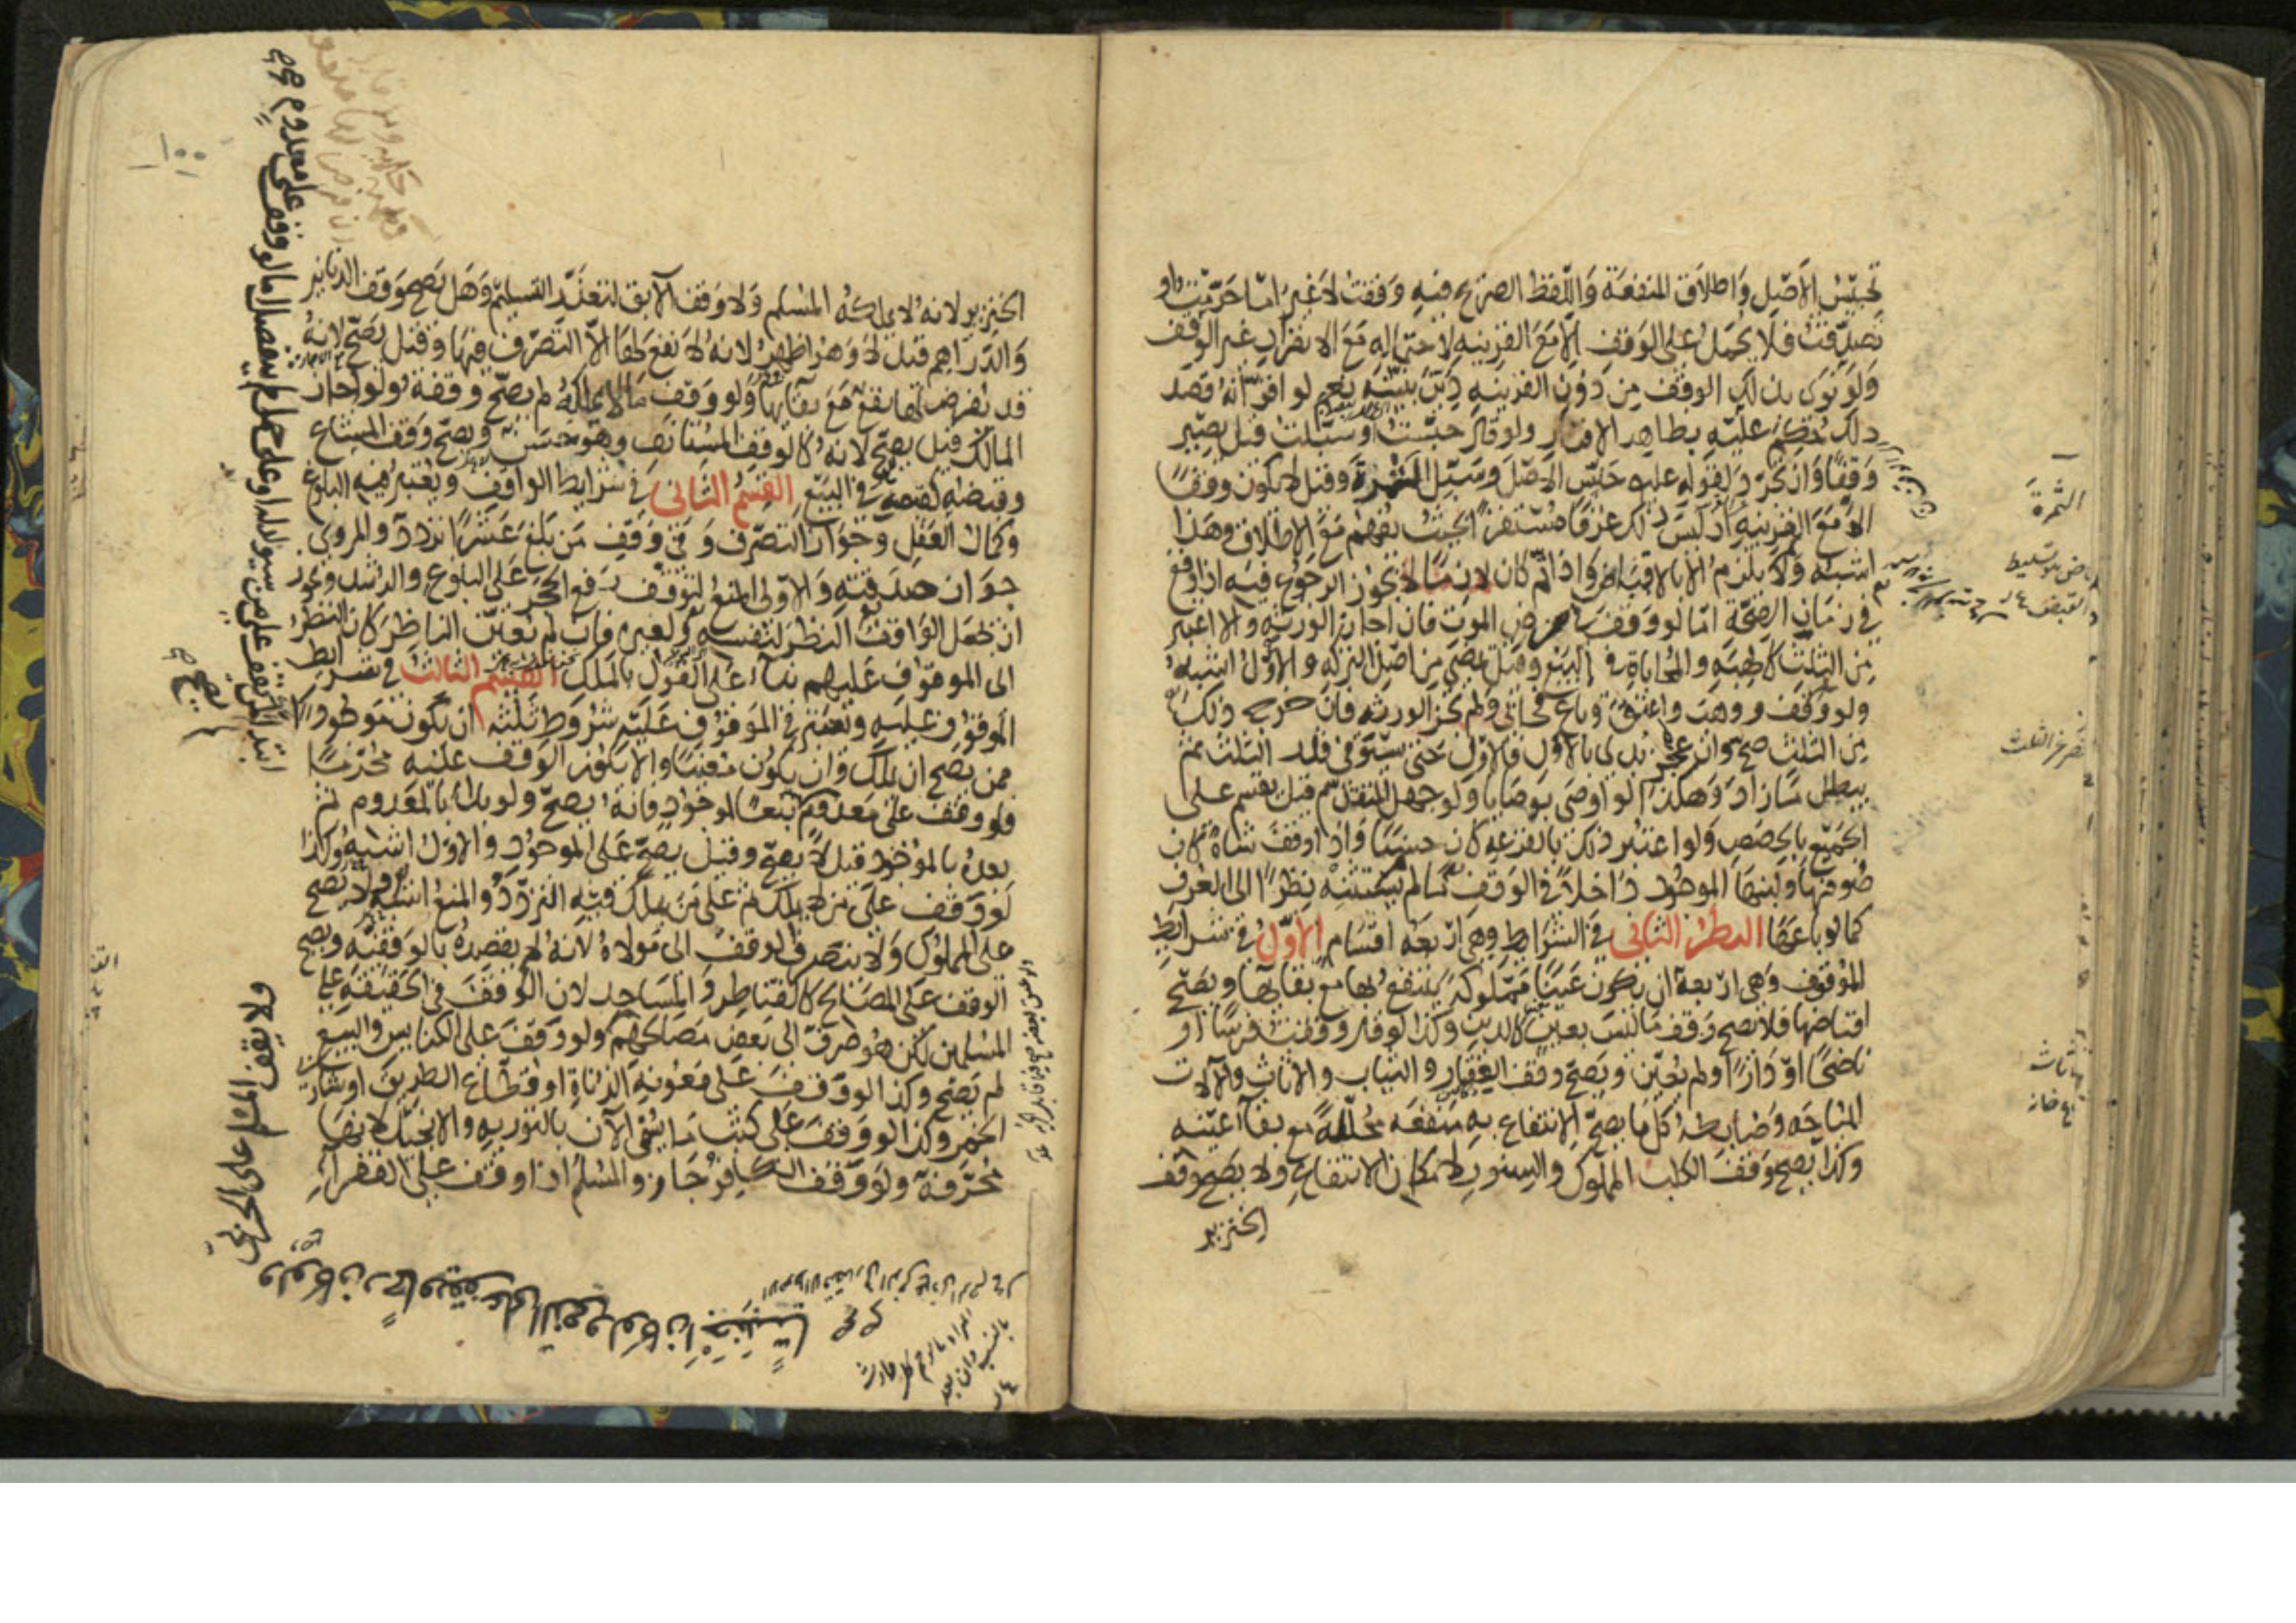 تحبيس الاصل واطلاق المنفعة واللفظ الصريح فيه وقفت لا غير اما حرمت او
تصدقت فلا يحمل على الوقف الا مع القرينة لاحتماله مع الانفراد غير الوقف
ولو نوى بذلك الوقف من دون القرينة دين بنيته نعم لو اقر انه قصد
ذلك حكم عليه بظاهر الاقرار ولو قال حبست وسبلت قيل يصير
وقفا وان تجرد لقوله عليه حبس الاصل وسبل الثمرة وقيل لا يكون وقفا
الا مع القرينة اذ ليس ذلك عرفا مستقرا بحيث يفهم مع الاطلاق وهذا
اشبه ولا يلزم الا بالاقباض واذا تم كان لازما لا يجوز الرجوع فيه اذا وقع
في زمان الصحة اما لو وقف في مرض الموت فان اجاز الورثة والا اعتبر
من الثلث كالهبة والمحاباة في البيع وقيل يمضي من اصل التركة والاول اشبه
ولو وقف ووهب واعتق وباع فحابى ولم تجز الورثة فان خرج ذلك
من الثلث صح وان عجز بدئ بالاول فالاول حتى يستوفى قدر الثلث ثم
يبطل ما زاد وهكذا لو اوصى بوصايا ولو جهل المتقدم قيل يقسم على
الجميع بالحصص ولو اعتبر ذلك بالقرعة كان حسنا واذا وقف شاة كان
صوفها ولبنها الموجود داخلا في الوقف ما لم يستثنه نظرا الى العرف
كما لو باعها النظر الثاني في الشرايط وهي اربعة اقسام الاول في شرايط
الموقوف وهي اربعة ان يكون عينا مملوكة ينتفع بها مع بقائها ويصح
اقباضها فلا يصح وقف ما ليس بعين كالدين وكذا لو قال وقفت فرسا او
ناضحا او دارا ولم يعين ويصح وقف العقار والثياب والاثاث والالات
المباحة وضابطه كل ما يصح الانتفاع به منفعة محللة مع بقاء عينه
وكذا يصح وقف الكلب المملوك والسنور لامكان الانتفاع ولا يصح وقف
الخنزير
الثمرة
الخنزير لانه لا يملكه المسلم ولا وقف الابق لتعذر التسليم وهل يصح وقف الدنانير
والدراهم قيل لا وهو اظهر لانه لا نفع لها الا التصرف فيها وقيل يصح لانه
قد يفرض لها نفع مع بقائها ولو وقف ما لا يملكه لم يصح وقفه ولو اجاز
المالك قيل يصح لانه كالوقف المستانف وهو حسن ويصح وقف المشاع
وقبضه كقبضه في البيع القسم الثاني في شرايط الواقف ويعتبر فيه البلوغ
وكمال العقل وجواز التصرف وفي وقف من بلغ عشرا تردد والمروي
جواز صدقته والاولى المنع لتوقف رفع الحجر على البلوغ والرشد ويجوز
ان يجعل الواقف النظر لنفسه ولغيره فان لم يعين الناظر كان النظر
الى الموقوف عليهم بناء على القول بالملك القسم الثالث في شرايط
الموقوف عليه ويعتبر في الموقوف عليه شروط ثلثة ان يكون موجودا
ممن يصح ان يملك وان يكون معينا والا يكون الوقف عليه محرما
فلو وقف على معدوم تبعا لموجود فانه يصح ولو بدا بالمعدوم ثم
بعده بالموجود قيل لا يصح وقيل يصح على الموجود والاول اشبه وكذا
لو وقف على من لا يملك ثم على من يملك فيه التردد والمنع اشبه ولا يصح
على المملوك ولا ينصرف الوقف الى مولاه لانه لم يقصده بالوقفية ويصح
الوقف على المصالح كالقناطر والمساجد لان الوقف في الحقيقة على
المسلمين لكن هو صرف الى بعض مصالحهم ولو وقف على الكنايس والبيع
لم يصح وكذا لو وقف على معونة الزناة او قطاع الطريق او شارب
الخمر وكذا لو وقف على كتب ما يسمى الان بالتورية والانجيل لانها
محرفة ولو وقف الكافر جاز والمسلم اذا وقف على الفقراء
ولو وقف على معدوم
ابتداء لم يصح
ولا يقف المسلم على الحربي
ولو كان رحما ويقف على الذمي ولو كان اجنبيا
١٠٠